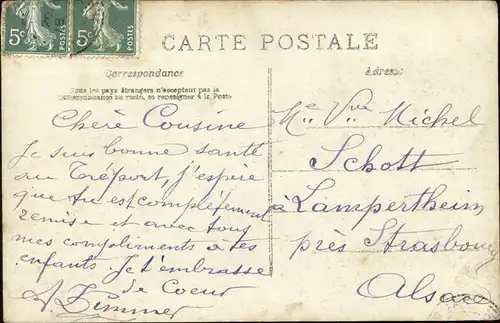 5c POSTES 5c POSTES
CARTE POSTALE
Correspondance
Tous les pays étrangers n'acceptent pas la
correspondance au recto, se renseigner à la Poste
Chère Cousine
Je suis bonne santé
au Tréport, j'espère
que tu est complétement
remise et avec tous
mes compliments a tes
enfants. Je t'embrasse
de Coeur
A. Zimmer
Adresse
Me Vve Michel
Schott
à Lampertheim
près Strasbourg
Alsace